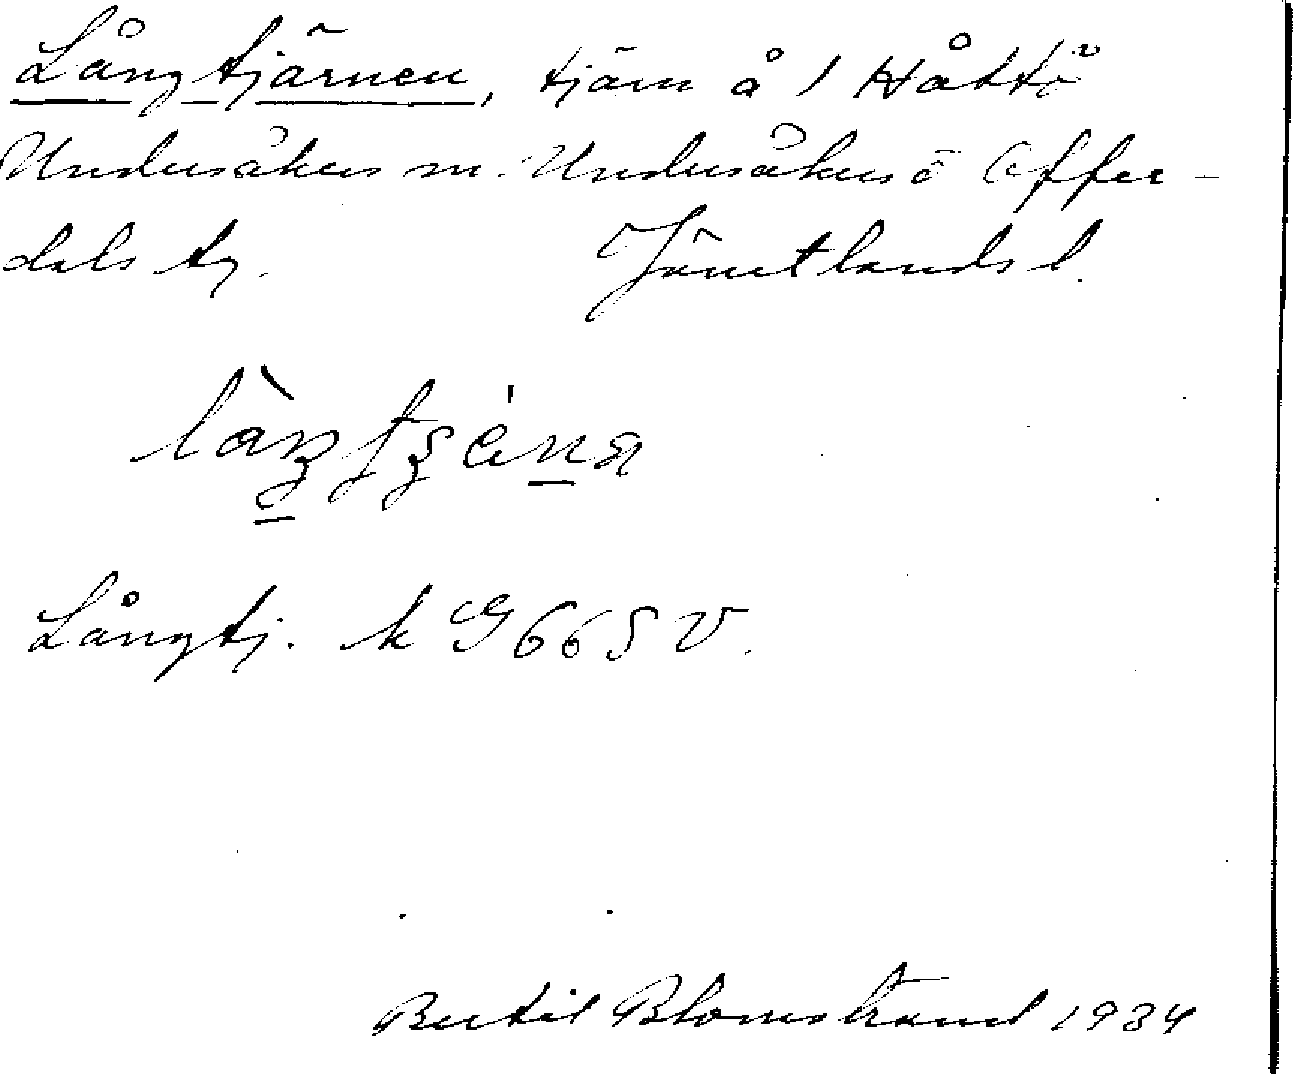 Långtjärnen, tjärn å 1 Håttö
Undersåkers sn. Undersåkers o Offer-
dals tg. Jämtlands l.
Långtj. k G 66 S V.
Bertil Blomstrand 1934